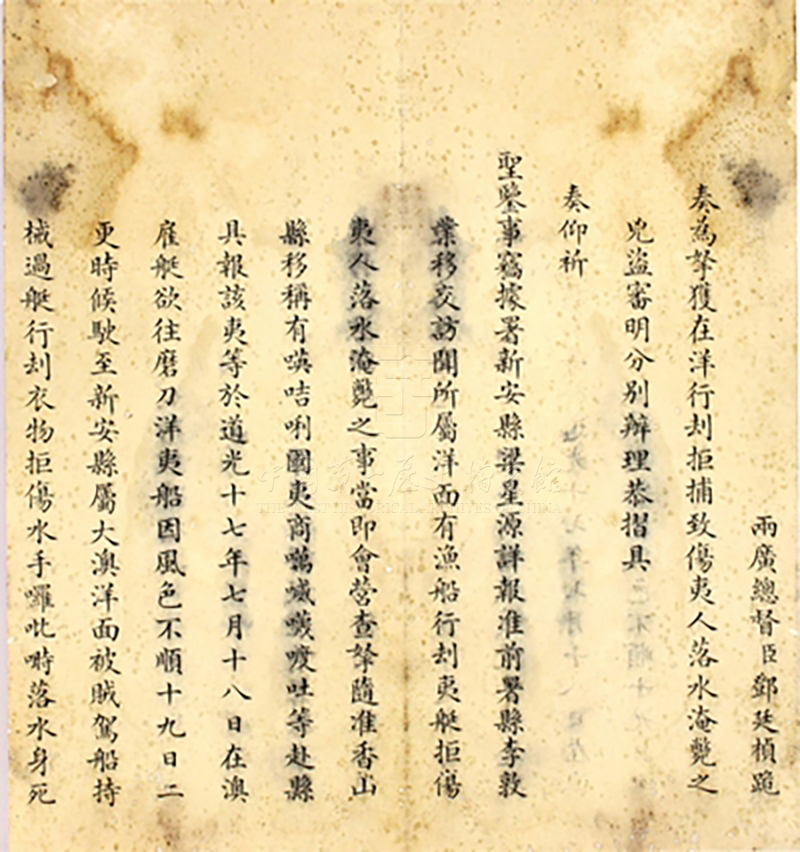 兩廣總督臣鄧廷楨跪
奏為拏獲在洋行刦拒捕致傷夷人落水淹斃之
兇盜審明分別辦理恭摺具
奏仰祈
聖鑒事竊據署新安縣梁星源詳報准前署縣李敦
業移交訪聞所屬洋面有漁船行刦夷艇拒傷
夷人落水淹斃之事當即會營查拏隨准香山
縣移稱有㖦咭唎國夷商噫吐等赴縣
具報該夷等於道光十七年七月十八日在澳
雇艇欲往磨刀洋夷船因風色不順十九日二
更時候駛至新安縣屬大澳洋面被賊駕船持
械過艇行刦衣物拒傷水手囉吡時落水身死